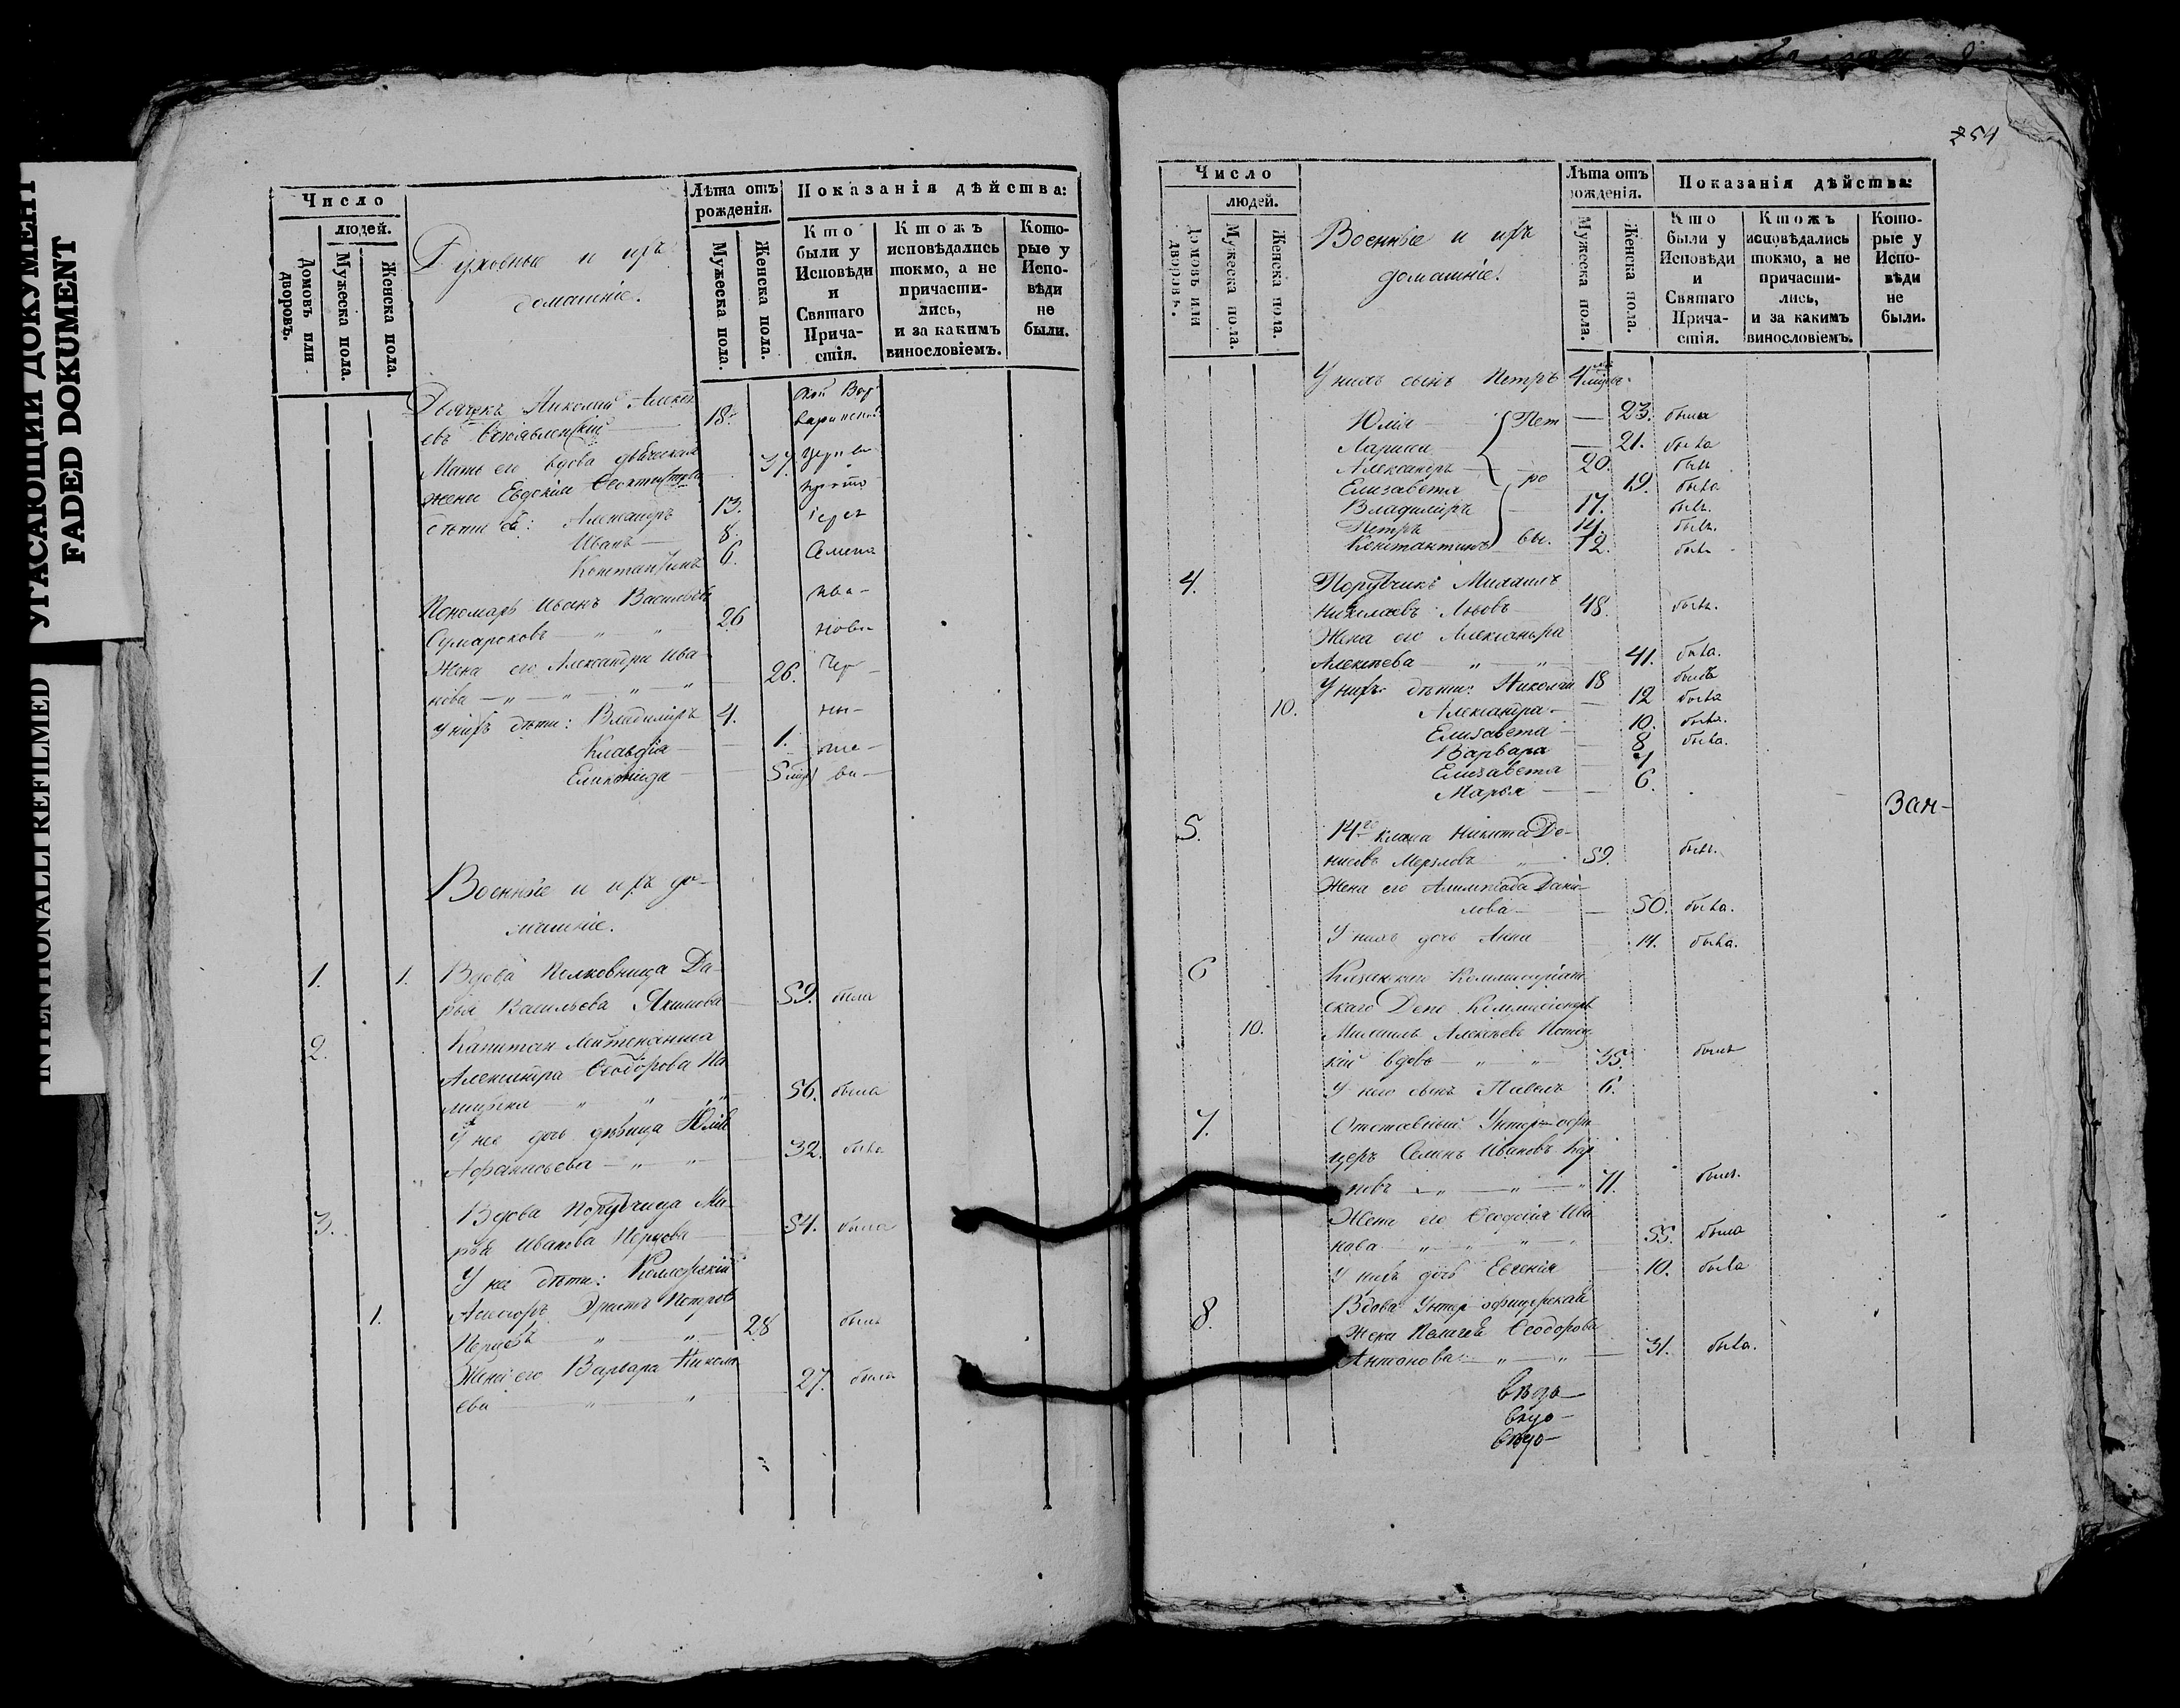 УГАСАЮЩИЙ ДОКУМЕНТ
FADED DOKUMENT
INTENTIONALLY REFILMED
Число
людей.
Домовъ или дворовъ.
Мужеска пола.
Женска пола.
Духовные и ихъ
домашніе.
Лѣта отъ рожденія.
Мужеска пола.
Женска пола.
Показанія дѣйства:
Кто были у Исповѣди и Святаго Прича-стія.
Ктожъ исповѣдались токмо, а не причасти-лись, и за какимъ винословіемъ.
Кото-рые у Испо-вѣди не были.
Дьячекъ Николай Алексѣ
евъ 18.
Мать его вдова дьяческая 37.
жена Евдокія Ѳеоктистова
дѣти ея: Александръ 13.
Иванъ 8.
Константинъ 6.
Пономарь Иванъ Васильевъ
Сумароковъ 26
Жена его Александра Ива-
нова 26.
У нихъ дѣти: Владиміръ 4.
Клавдія 1.
5 мѣс
Военные и ихъ до-
машніе.
1. 1. Вдова Полковница Да-
рья Васильева Якимова 59. была
2. Капитан Лейтенанша
Александра Ѳеодорова
56. была
У нее дочь дѣвица Юлія
Афанасьева 32. была
3. Вдова Порутчица Ма-
рья Иванова Перцова 54. была
У нее дѣти: Коллежскій
1. Асессоръ Эрастъ Петровъ
Перцовъ 28 былъ
Жена его Варвара Никола
ева 27. была
254
Число
людей.
Домовъ или дворовъ.
Мужеска пола.
Женска пола.
Военные и ихъ
домашніе.
Лѣта отъ рожденія.
Мужеска пола.
Женска пола.
Показанія дѣйства:
Кто были у Исповѣди и Святаго Прича-стія.
Ктожъ исповѣдались токмо, а не причасти-лись, и за какимъ винословіемъ.
Кото-рые у Испо-вѣди не были.
У нихъ сынъ Петръ 4
Юлія Пет 23. была
Лариса 21. была
Александръ 20. былъ
Елизавета ро 19. была
Владиміръ 17. былъ.
Петръ 14. былъ.
Константинъ вы. 12. былъ
4. Порутчикъ Михаилъ
Николаевъ Львовъ 48. былъ.
Жена его Александра
Алексѣева 41. была.
У нихъ дѣти: Николай 18 былъ
10. Александра 12 была
Елизавета 10. была.
Варвара 8. была.
Елизавета 7
Марья 6.
Зан-
5. 14го класа Никита Де-
нисовъ Мерзловъ 59. былъ.
Жена его Алимпіада Дани-
лова 50. была.
У нихъ дочь Анна 14. была.
6 Казанскаго Коммисаріат
скаго Депо Коммисіонеръ
10. Михаилъ Алексѣевъ
кій вдовъ 35. былъ
У него сынъ Павелъ 6.
7. Отставный Унтеръ-офи
церъ Семенъ Ивановъ
новъ 71. былъ.
Жена его Ѳеодосія Ива
нова 55. была
У нихъ дочь Евгенія 10. была
8. Вдова Унтер-офицерская
Жена Пелагея Ѳеодорова
Антонова 31. была.